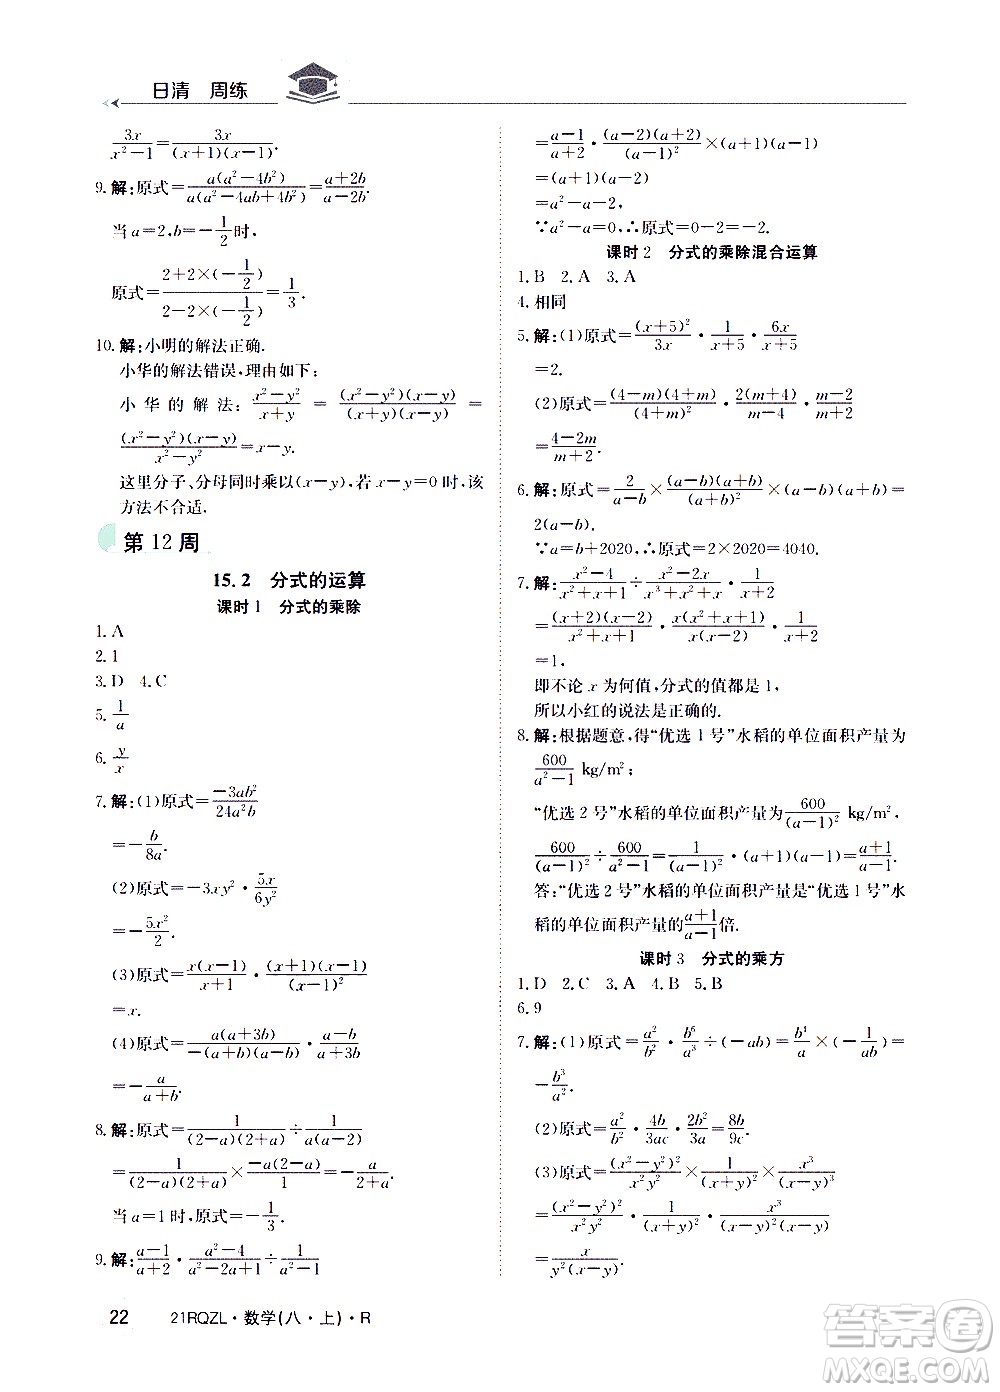 日清 周练
3x/(x²-1)=3x/((x+1)(x-1)).
9. 解:原式=a(a²-4b²)/(a(a²-4ab+4b²))=(a+2b)/(a-2b).
当a=2,b=-1/2时,
原式=(2+2×(-1/2))/(2-2×(-1/2))=1/3.
10. 解:小明的解法正确.
小华的解法错误,理由如下:
小华的解法:(x²-y²)/(x+y)=(x²-y²)(x-y)/((x+y)(x-y))=
(x²-y²)(x-y)/(x²-y²)=x-y,
这里分子、分母同时乘以(x-y),若x-y=0时,该
方法不合适.
第12周
15.2 分式的运算
课时1 分式的乘除
1. A
2. 1
3. D 4. C
5. 1/a
6. y/x
7. 解:(1)原式=-3ab²/24a²b
=-b/8a.
(2)原式=-3xy²·5x/6y²
=-5x²/2.
(3)原式=x(x-1)/(x+1)·(x+1)(x-1)/(x-1)²
=x.
(4)原式=a(a+3b)/(-(a+b)(a-b))·(a-b)/(a+3b)
=-a/(a+b).
8. 解:原式=1/((2-a)(2+a))÷1/(a(a-2))
=1/((2-a)(2+a))×-a(2-a)/1=-a/(a+2).
当a=1时,原式=-1/3.
9. 解:原式=(a-1)/(a+2)·(a²-4)/(a²-2a+1)÷1/(a²-1)
=(a-1)/(a+2)·(a-2)(a+2)/(a-1)²×(a+1)(a-1)
=(a-2)(a+1)
=a²-a-2.
∵a²-a=0,∴原式=0-2=-2.
课时2 分式的乘除混合运算
1. B 2. A 3. A
4. 相同
5. 解:(1)原式=(x+5)²/3x·1/(x+5)·6x/(x+5)
=2.
(2)原式=(4-m)(4+m)/(4+m)²·2(m+4)/(m-4)·(m-2)/(m+2)
=(4-2m)/(m+2).
6. 解:原式=2/(a-b)×(a-b)(a+b)/(a+b)²×(a-b)(a+b)=
2(a-b).
∵a=b+2020,∴原式=2×2020=4040.
7. 解:(x²-4)/(x²+x+1)÷(x²-2x)/(x³+x²+x)·1/(x+2)
=(x+2)(x-2)/(x²+x+1)·x(x²+x+1)/(x(x-2))·1/(x+2)
=1,
即不论x为何值,分式的值都是1,
所以小红的说法是正确的.
8. 解:根据题意,得“优选1号”水稻的单位面积产量为
600/(a²-1) kg/m²;
“优选2号”水稻的单位面积产量为600/(a-1)² kg/m²,
600/(a-1)²÷600/(a²-1)=1/(a-1)²·(a+1)(a-1)=(a+1)/(a-1).
答:“优选2号”水稻的单位面积产量是“优选1号”水
稻的单位面积产量的(a+1)/(a-1)倍.
课时3 分式的乘方
1. D 2. C 3. A 4. B 5. B
6. 9
7. 解:(1)原式=a²/b²·b⁶/a³÷(-ab)=b⁴/a×(-1/ab)=
-b³/a².
(2)原式=a²/b²·4b/3ac·2b²/3a=8b/9c.
(3)原式=(x²-y²)²/x²y²×1/(x+y)²×x³/(x-y)³
=(x²-y²)²/x²y²·1/(x+y)²·x³/(x-y)³
=x/(y²(x-y)).
22 21RQZL·数学(八·上)·R
答案圈
MXQE.COM